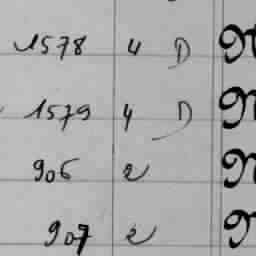 1578 4 D
1579 4 D
906 2
907 2